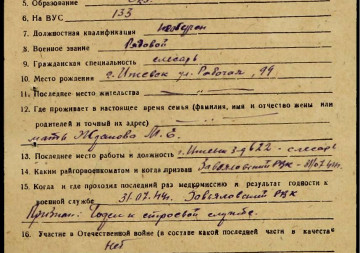 5. Образование
6. На ВУС 133
7. Должностная квалификация
8. Военное звание Рядовой
9. Гражданская специальность слесарь
10. Место рождения г. Ижевск ул. Рабочая, 99
11. Последнее место жительства
12. Где проживает в настоящее время семья (фамилия, имя и отчество жены или
родителей и точный их адрес)
мать Жданова М. Е.
13. Последнее место работы и должность г. Ижевск з-д 622 - слесарь
14. Каким райгорвоенкоматом и когда призван Завьяловский РВК
15. Когда и где проходил последний раз медкомиссию и результат годности к
военной службе 31.07.44г. Завьяловский РВК
Признан: Годен к строевой службе.
16. Участие в Отечественной войне (в составе какой последней части в качестве
Нет